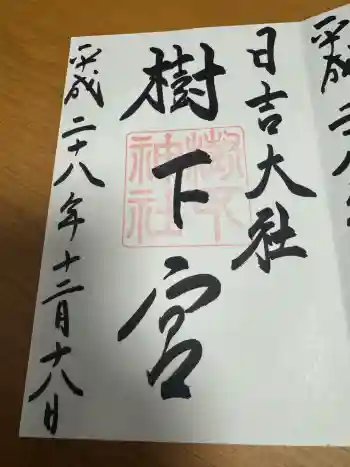 平成二
日吉大社
樹下宮
樹下
神社
平成二十八年十二月十八日